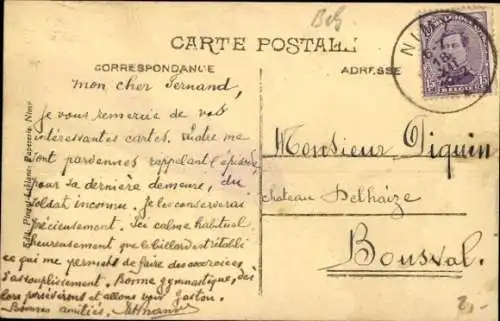 Belg
CARTE POSTALE
CORRESPONDANCE
ADRESSE
BELGIQUE
15
15
NIMY
18
mon cher Fernand,
Je vous remercie de vos
intéressantes cartes.
sont parvenues rappelant l'épisode
pour sa dernière demeure, du
soldat inconnu. Je les conserverai
précieusement. Ici calme habituel
heureusement que le billard est rétabli
ce qui me permet de faire des exercices
d'assouplissement. Bonne gymnastique, dès
lors persévérons et allons voir gaston.
Bonnes amitiés,
Monsieur Piquin
chateau Delhaize
Bousval.
Nimy